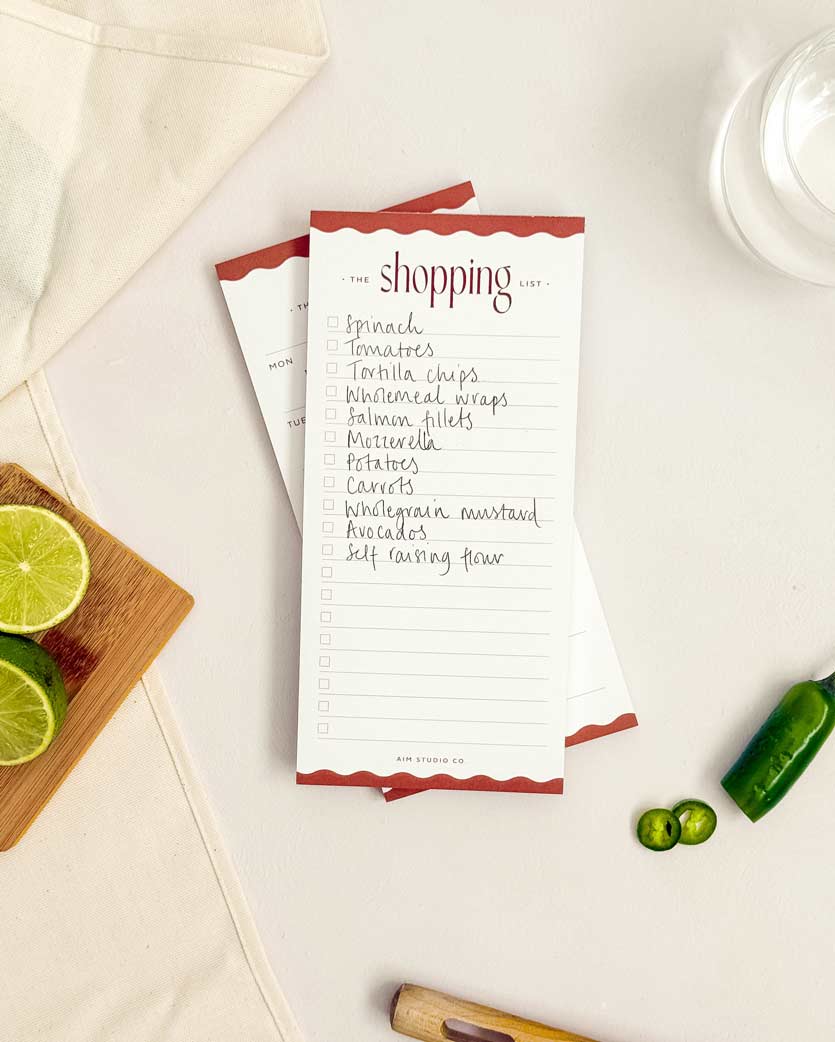 · THE shopping LIST ·
Spinach
Tomatoes
Tortilla chips
Wholemeal wraps
Salmon fillets
Mozzerella
Potatoes
Carrots
Wholegrain mustard
Avocados
Self raising flour
AIM STUDIO CO.
· TH
MON
TUE